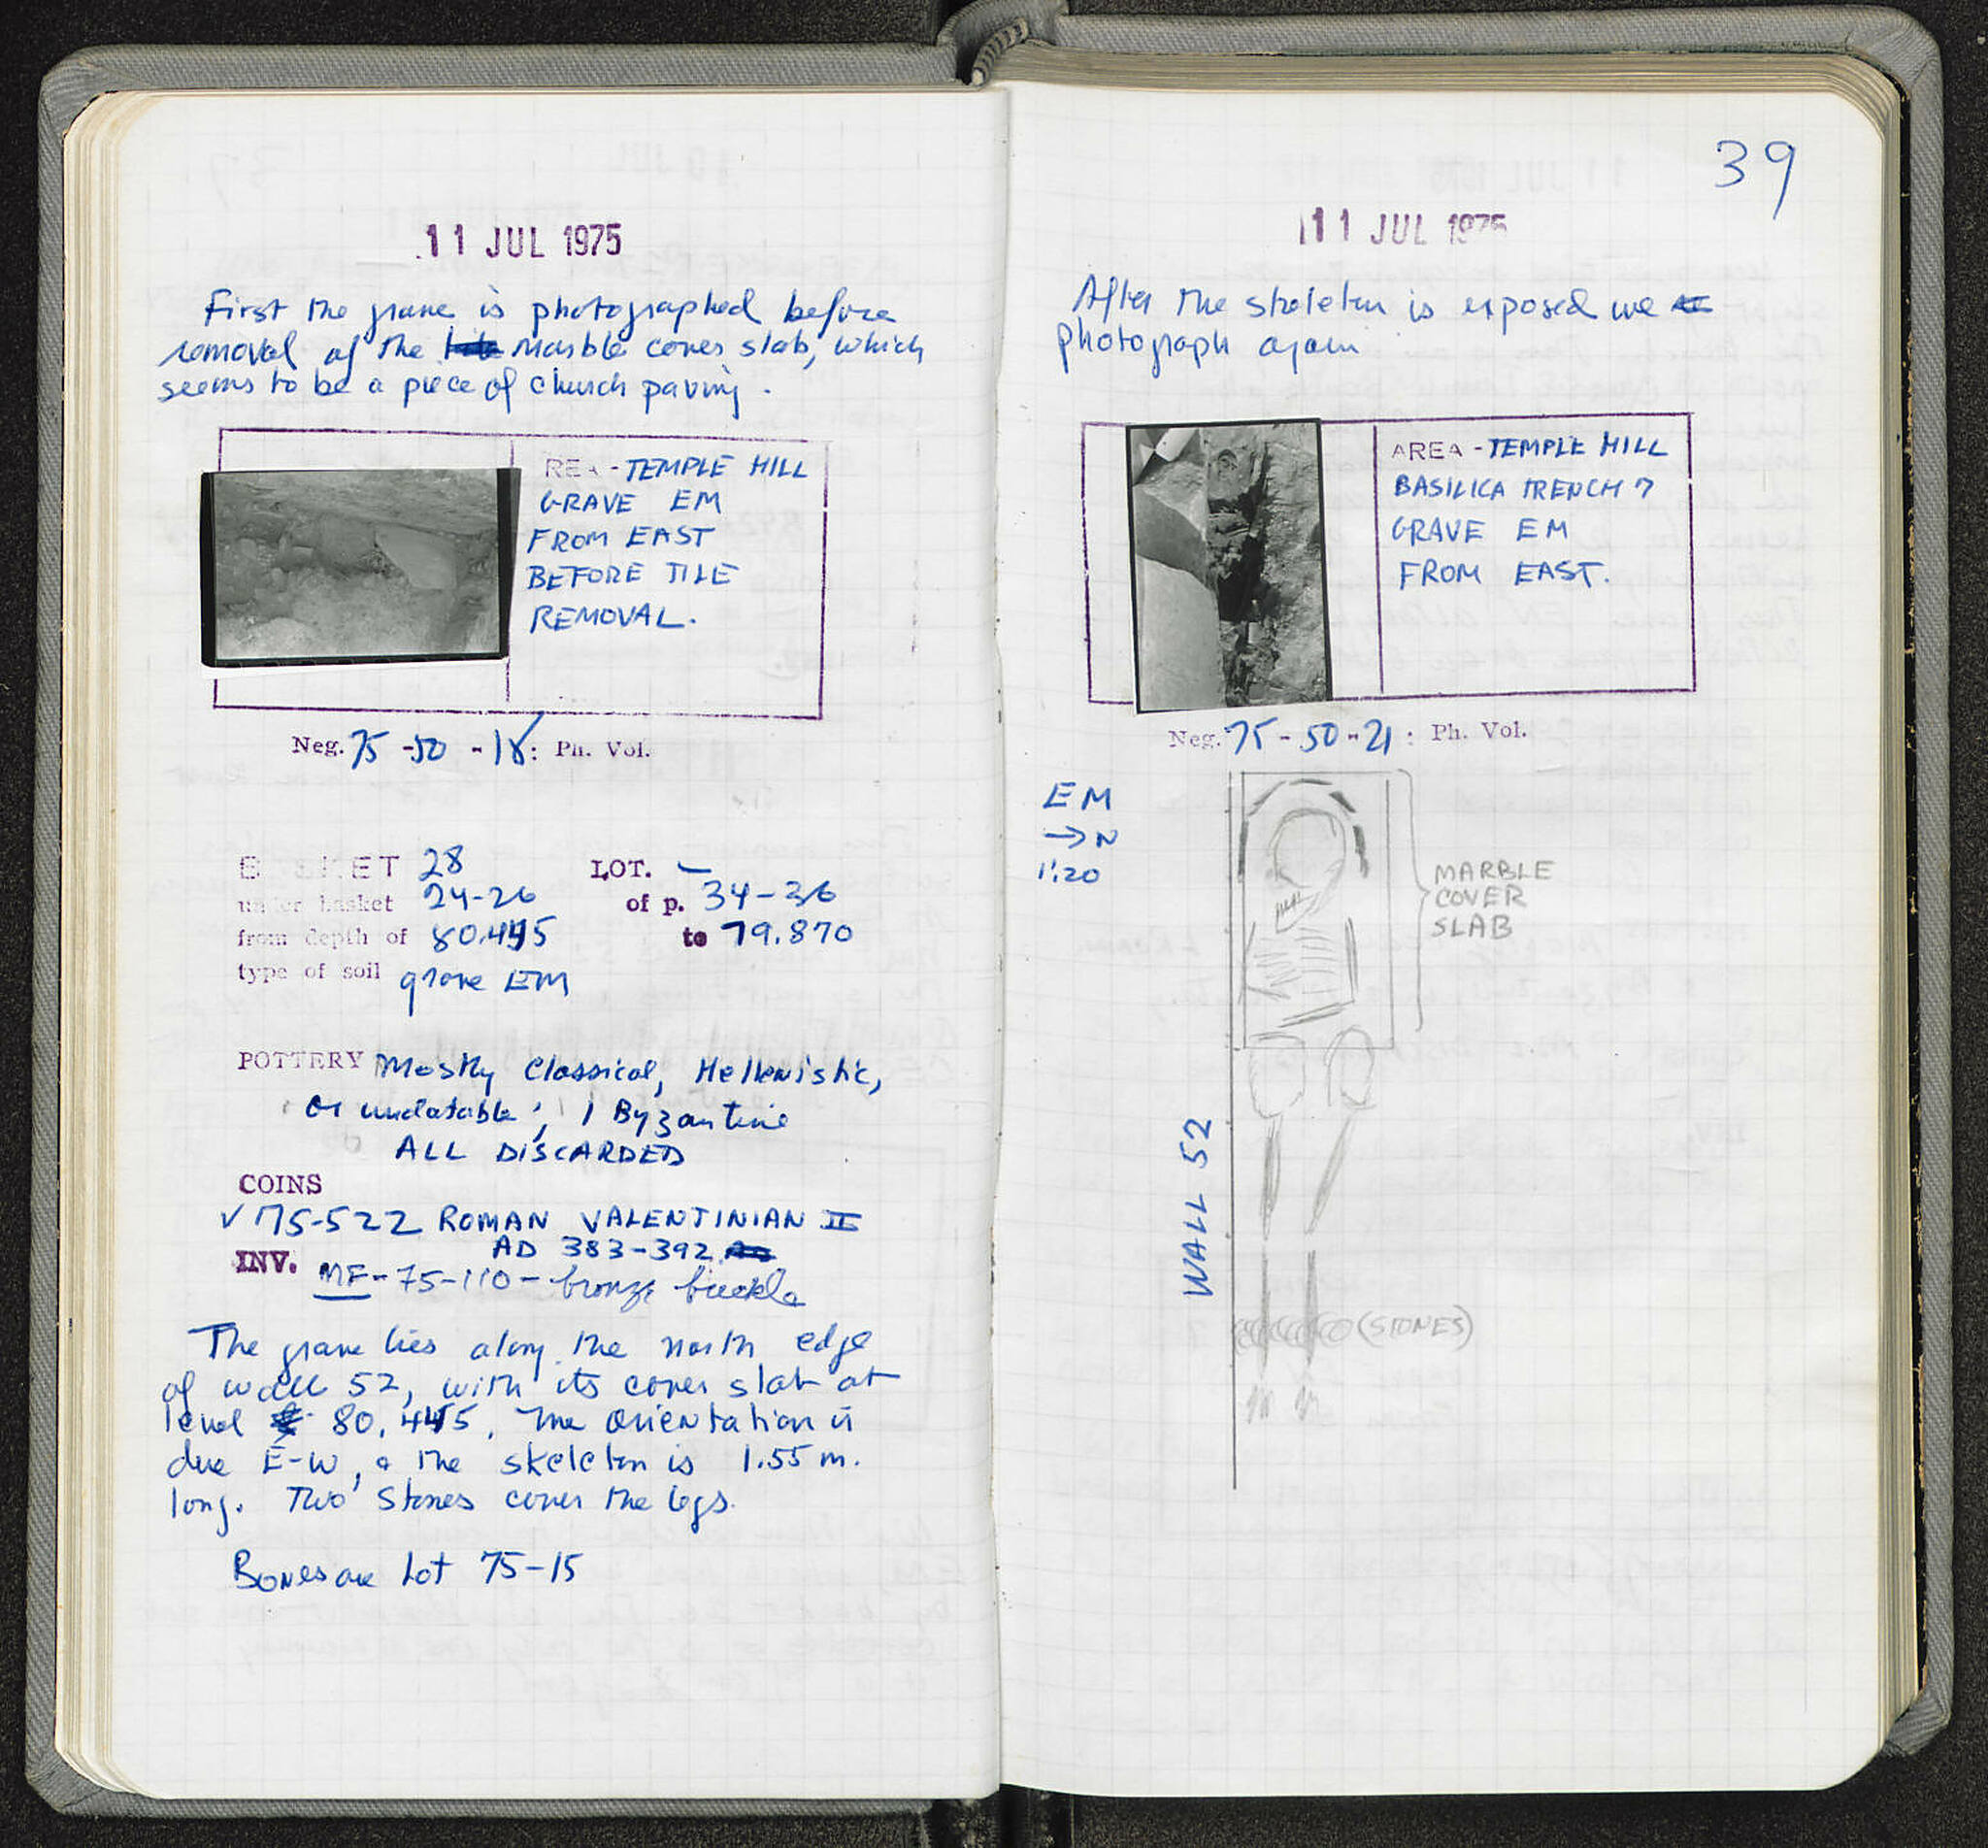 11 JUL 1975
First the grave is photographed before
removal of the marble cover slab, which
seems to be a piece of church paving.
REA - TEMPLE HILL
GRAVE EM
FROM EAST
BEFORE TILE
REMOVAL.
Neg. 75-50-18: Ph. Vol.
BASKET 28 LOT. -
under basket 24-26 of p. 34-36
from depth of 80.445 to 79.870
type of soil grave EM
POTTERY Mostly Classical, Hellenistic,
or undatable; 1 Byzantine
ALL DISCARDED
COINS
✓ 75-522 ROMAN VALENTINIAN II
AD 383-392
INV. MF-75-110 - bronze buckle
The grave lies along the north edge
of wall 52, with its cover slab at
level 80.445. The orientation is
due E-W, & the skeleton is 1.55 m.
long. Two stones cover the legs.
Bones are Lot 75-15
39
11 JUL 1975
After the skeleton is exposed we
photograph again
AREA - TEMPLE HILL
BASILICA TRENCH 7
GRAVE EM
FROM EAST.
Neg. 75-50-21: Ph. Vol.
EM
→N
1:20
MARBLE
COVER
SLAB
WALL 52
(STONES)